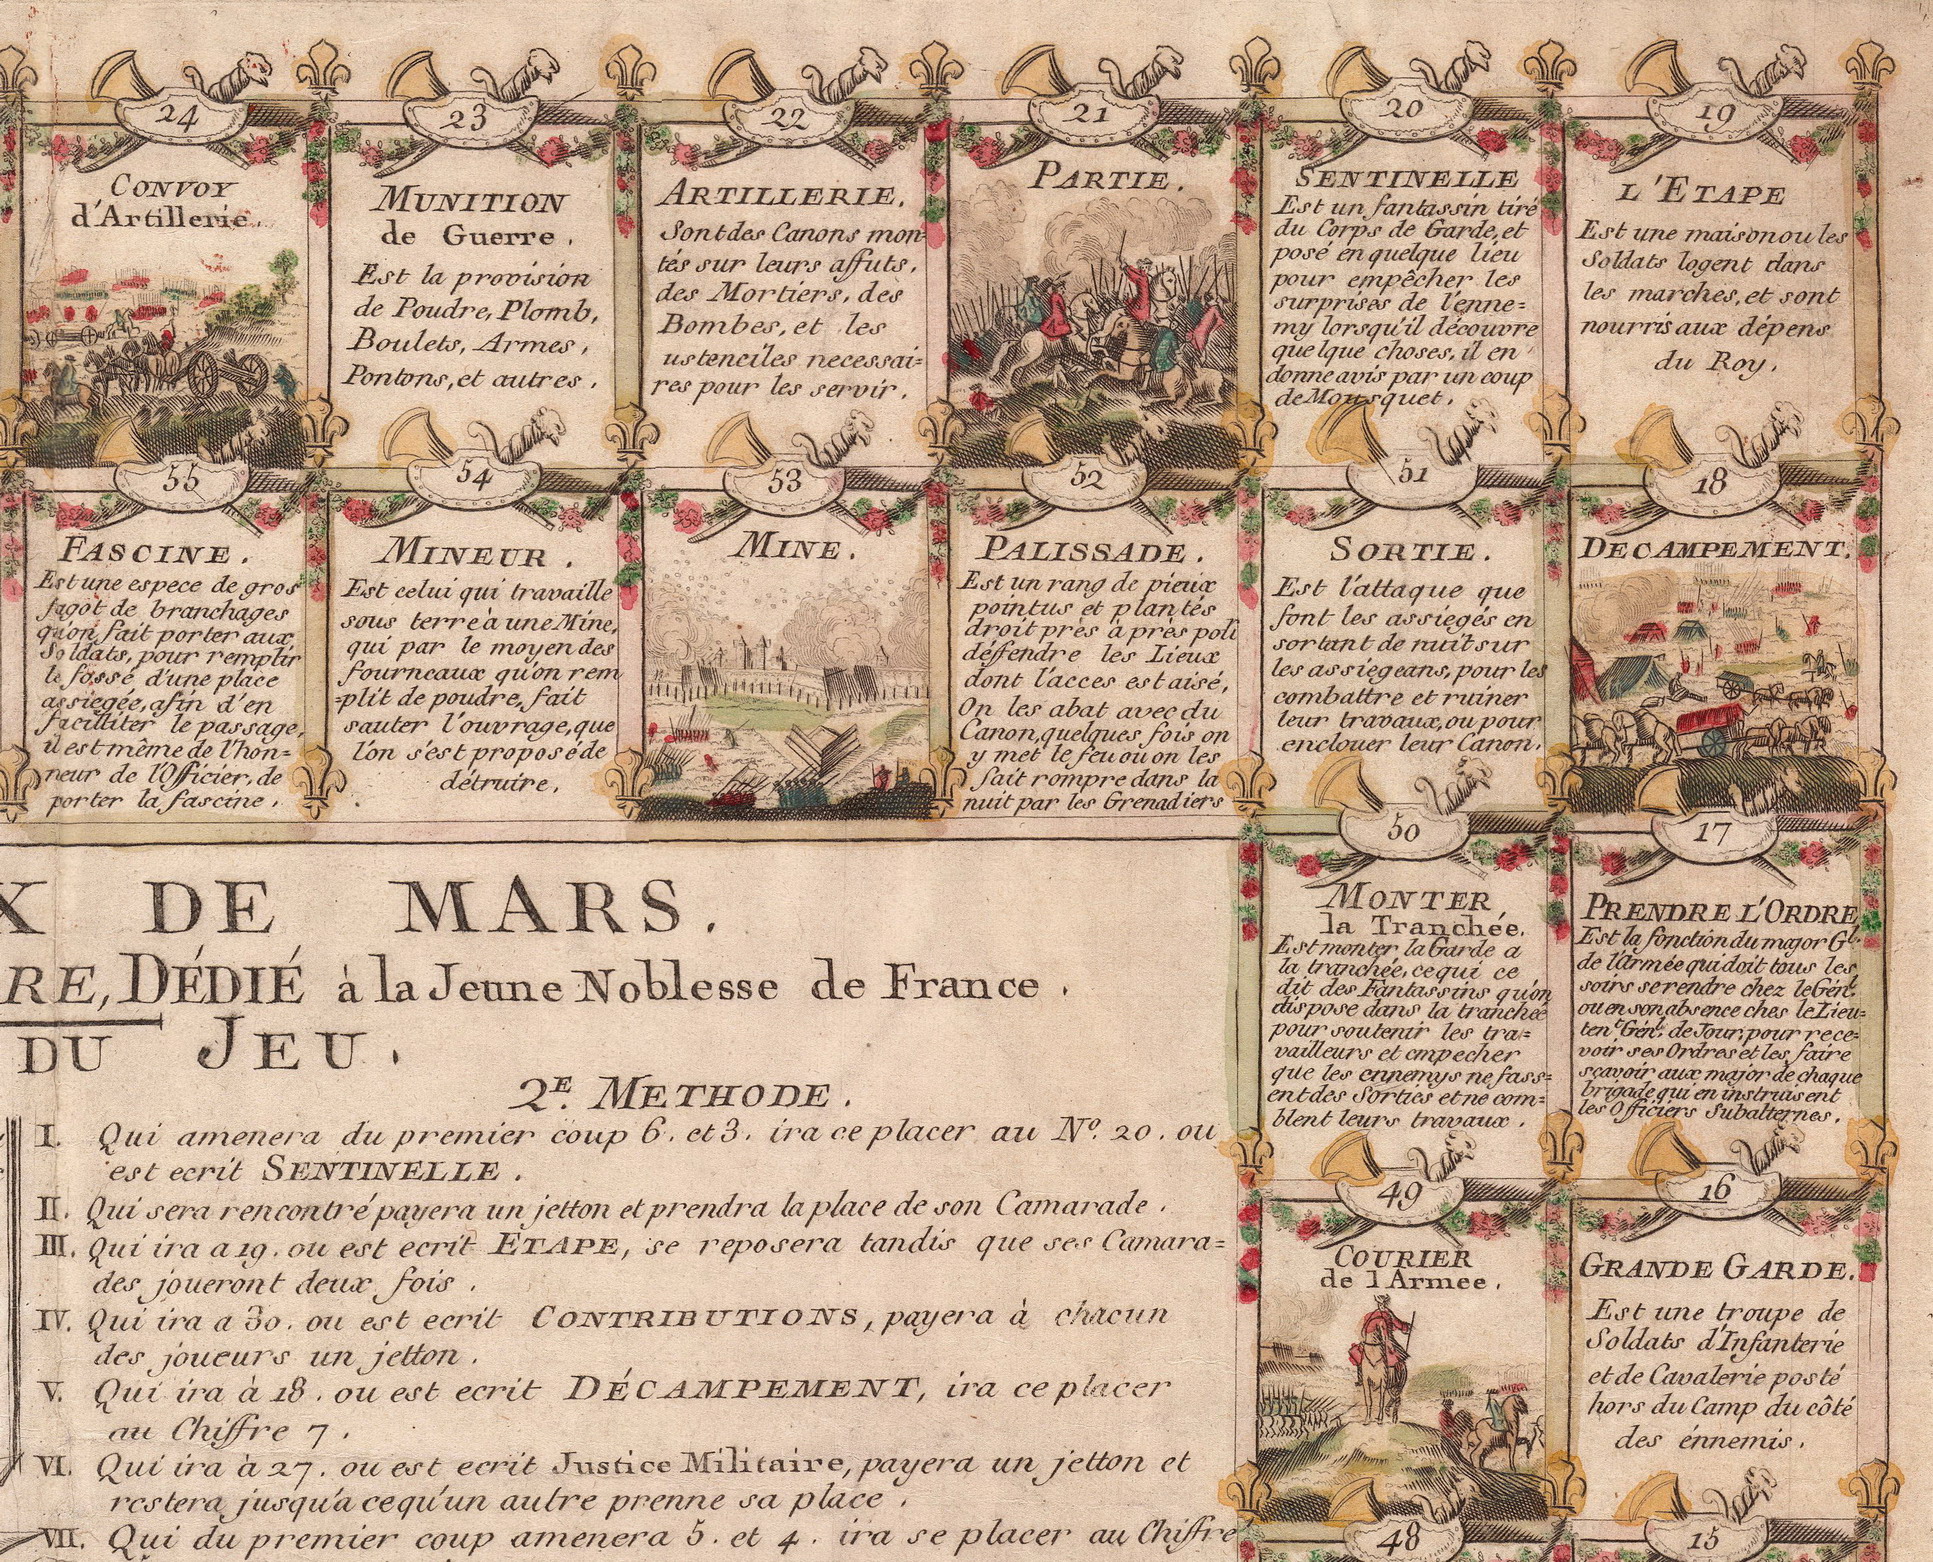 24
CONVOY
d'Artillerie.
23
MUNITION
de Guerre.
Est la provision
de Poudre, Plomb,
Boulets, Armes,
Pontons, et autres.
22
ARTILLERIE.
Sont des Canons mon-
tés sur leurs affuts,
des Mortiers, des
Bombes, et les
ustenciles necessai=
res pour les servir.
21
PARTIE.
20
SENTINELLE
Est un fantassin tiré
du Corps de Garde, et
posé en quelque lieu
pour empêcher les
surprises de l'enne=
my lorsqu'il découvre
quelque choses, il en
donne avis par un coup
de Mousquet.
19
L'ETAPE
Est une maison ou les
Soldats logent dans
les marches, et sont
nourris aux dépens
du Roy.
55
FASCINE.
Est une espece de gros
fagot de branchages
qu'on fait porter aux
Soldats, pour remplir
le fossé d'une place
assiegée, afin d'en
facilliter le passage,
il est même de l'hon=
neur de l'Officier, de
porter la fascine.
54
MINEUR.
Est celui qui travaille
sous terre à une Mine,
qui par le moyen des
fourneaux qu'on rem
=plit de poudre, fait
sauter l'ouvrage, que
l'on s'est proposé de
détruire.
53
MINE.
52
PALISSADE.
Est un rang de pieux
pointus et plantés
droit près à près poli
déffendre les Lieux
dont l'acces est aisé,
On les abat avec du
Canon, quelques fois on
y met le feu ou on les
fait rompre dans la
nuit par les Grenadiers
51
SORTIE.
Est l'attaque que
font les assiegés en
sortant de nuit sur
les assiegeans, pour les
combattre et ruiner
leur travaux, ou pour
enclouer leur Canon.
18
DECAMPEMENT.
50
MONTER
la Tranchée.
Est monter la Garde a
la tranchée, ce qui ce
dit des Fantassins qu'on
dispose dans la tranchée
pour soutenir les tra=
vailleurs et empecher
que les ennemys ne fass=
ent des Sorties et ne com=
blent leurs travaux.
17
PRENDRE L'ORDRE
Est la fonction du major Gl.
de l'Armée qui doit tous les
soirs se rendre chez le Génl.
ou en son absence ches le Lieu=
tent Génl. de Jour, pour rece=
voir ses Ordres et les faire
sçavoir aux major de chaque
brigade qui en instruisent
les Officiers Subalternes.
49
COURIER
de l Armee.
16
GRANDE GARDE.
Est une troupe de
Soldats d'Infanterie
et de Cavalerie posté
hors du Camp du côté
des ennemis.
48
15
X DE MARS.
RE, DÉDIÉ à la Jeune Noblesse de France.
DU JEU.
2E. METHODE.
I. Qui amenera du premier coup 6. et 3. ira ce placer au No. 20. ou
est ecrit SENTINELLE.
II. Qui sera rencontré payera un jetton et prendra la place de son Camarade.
III. Qui ira a 19. ou est ecrit ETAPE, se reposera tandis que ses Camara=
des joueront deux fois.
IV. Qui ira a 30. ou est ecrit CONTRIBUTIONS, payera à chacun
des joueurs un jetton.
V. Qui ira à 18. ou est ecrit DÉCAMPEMENT, ira ce placer
au Chiffre 7.
VI. Qui ira à 27. ou est ecrit Justice Militaire, payera un jetton et
restera jusqu'a ce qu'un autre prenne sa place.
VII. Qui du premier coup amenera 5. et 4. ira se placer au Chiffre